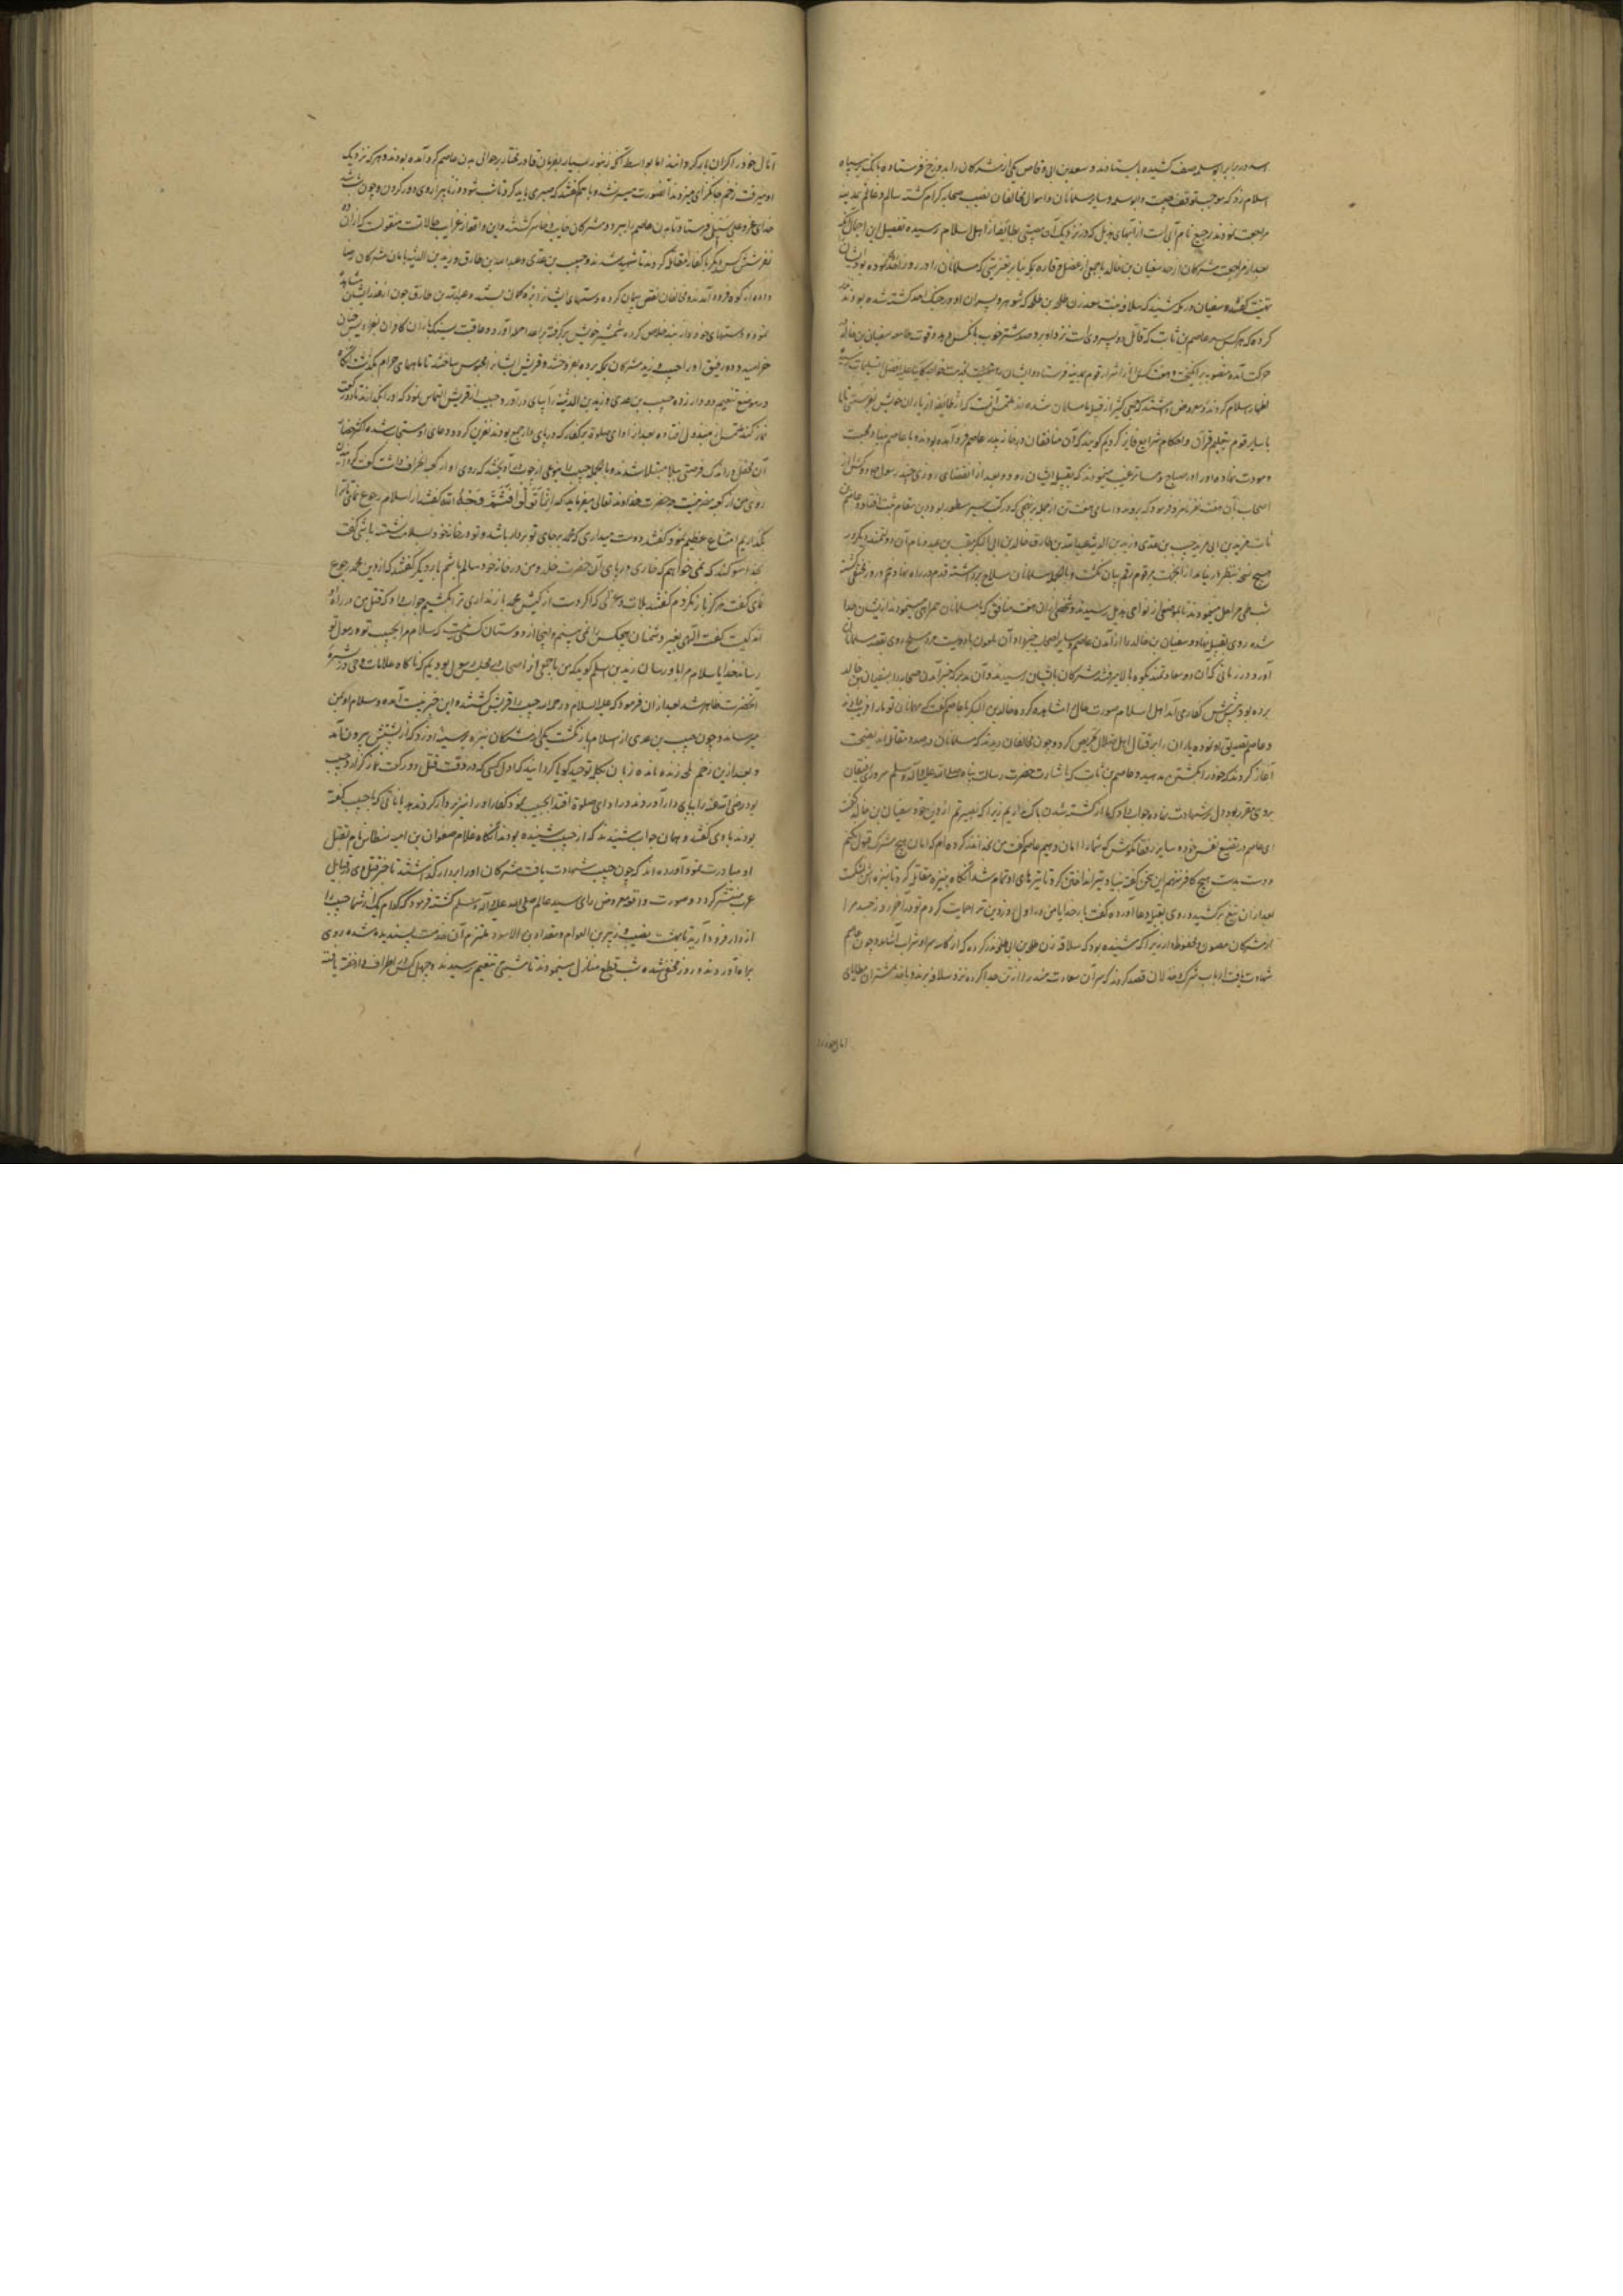 اسد در برابر ابوسلمه صف کشیده بایستادند و سعد بن ابی وقاص یکی از مشرکان را بدوزخ فرستاده بانک بر سپاه
اسلام زد که موجب توقف چیست و ابوسلمه و سایر مسلمانان و اموال مخالفان نصیب صحابه کرام گشته سالم و غانم بمدینه
مراجعت نمودند رجیع نام آبی است از آبهای هذیل که در نزدیک آن مصیبتی بطایفه از اهل اسلام رسیده تفصیل این اجمال آنکه
بعد از مراجعت مشرکان از احد سفیان بن خالد با جمعی از عضل و قاره بمکه بنابر تهنیتی که مسلمانان را در روز احد
تهنیت گفتند و سفیان در مکه شنید که سلافه بنت سعد زن طلحه بن طلحه که شوهر و پسران او در جنک احد کشته شده بودند
کرده که هر کس سر عاصم بن ثابت که قاتل دو پسر وی است نزد او برد صد شتر خوب بآنکس دهد و قوت طامعه سفیان بن خالد
حرکت آمده منصوبه برانگیخت و هفت کس از اشرار قوم بمدینه فرستاد و ایشان
اظهار اسلام کردند و معروض داشتند که جمعی کثیر از قبیله ما مسلمان شده اند ملتمس آنست که طایفه از یاران خویش بفرستی تا ما
با سایر قوم بتعلیم قرآن و احکام شرایع فایز کردیم گویند که آن منافقان در خانه پدر عاصم فرود آمده بودند و با عاصم بنیاد محبت
و مودت نهاده او را در صباح و مسا ترغیب مینمودند که بقبیله ایشان رود و بعد از انقضای روزی چند رسول ده کس از
اصحاب آن هفت نفر نامزد فرمود که بروند و اسامی هفت تن از جمله برنهجی که در کتب سیر مسطور بود درین مقام ثبت افتاد عاصم بن
ثابت مرثد بن ابی مرثد خبیب بن عدی و زید بن الدثنه عبد الله بن طارق خالد بن ابی البکیر معتب بن عبید و نام آن سه دولتمند دیگر در
هیچ نسخه بنظر در نیامد از آنجهت مرقوم رقم بیان نگشت و بالجمله مسلمانان سلاح برداشته قدم در راه نهادند و روز مختفی گشته
شب طی مراحل مینمودند تا بموضعی از نواحی هذیل رسیدند و شخصی از آن هفت منافق که با مسلمانان همراهی مینمودند از ایشان جدا
شده روی بقبیله نهاد و سفیان بن خالد را از آمدن عاصم و سایر اصحاب خبر داد آن ملعون با دویست مرد مسلح روی بقصد مسلمانان
آورد و در زمانی که آن ده سعادتمند بکوه بالا میرفتند مشرکان بایشان رسیدند و آن مدبر که خبر آمدن صحابه را بسفیان بن خالد
برده بود پیش پیش کفار می آمد اهل اسلام صورت حال مشاهده کرده خالد بن البکیر با عاصم گفت که مهمانان تو ما را فریب دادند
و عاصم تصدیق او نموده یاران را بر قتال اهل ضلال تحریص کرد و چون مخالفان دیدند که مسلمانان در صدد مقاتله اند نصیحت
آغاز کردند که خود را بکشتن مدهید و عاصم بن ثابت که باشارت حضرت رسالت پناه صلی الله علیه و آله و سلم سروری رفیقان
بروی مقرر بود دل بر شهادت نهاده جواب داد که ما از کشته شدن باک نداریم زیرا که بصیر تیم از دین خود سفیان بن خالد گفت
ای عاصم در تضییع نفس خود و سایر رفقا مکوش که شما را امان دهیم عاصم گفت من بخدا نذر کرده ام که امان هیچ مشرک قبول نکنم
و دست بدست هیچ کافر ننهم این سخن گفته بنیاد تیر انداختن کرد تا تیرهای او تمام شد آنگاه بنیزه مقاتله کرد تا نیزه اش شکست
بعد از آن تیغ برکشید و روی بقبله دعا آورده گفت بار خدایا من در اول روز دین ترا حمایت کردم تو در آخر روز جسد مرا
از مشرکان مصون و محفوظ دار زیرا که شنیده بود که سلافه زن طلحه بن ابی طلحه نذر کرده که از کاسه سر او شراب آشامد و چون عاصم
شهادت یافت ارباب شرک و خذلان قصد کردند که سر آن سعادتمند را از تن جدا کرده نزد سلافه برند و باخذ شتران مطایای
آمال خود را
آمال خود را گران بار گردانند اما بواسطه آنکه زنبور بسیار بفرمان قادر مختار بر حوالی بدن عاصم گرد آمده بودند و هر که نزدیک
او میرفت زخم جانگزای میزدند آنصورت میسر نشد و با هم گفتند که صبری باید کرد تا شب شود و زنابیر از وی دور گردند و چون شب شد
خدای عز و علی سیلی فرستاد تا بدن عاصم را ببرد و مشرکان خایب و خاسر گشتند و این واقعه از غرایب حالاتست منقولست که از آن ده
نفر شش کس دیگر با کفار مقاتله کردند تا شهید شدند و خبیب بن عدی و عبد الله بن طارق و زید بن الدثنه بامان مشرکان رضا
داده از کوه فرود آمدند و مخالفان نقض پیمان کرده دستهای ایشان را بزه کمان بستند و عبد الله بن طارق چون از غدر ایشان
نموده دستهای خود را از بند خلاص کرده شمشیر خویش برگرفته بر اعدا حمله آورد و عاقبت بسنک باران کافران بفرادیس جنان
خرامید و دو رفیق او را خبیب و زید مشرکان بمکه برده بفروختند و قریش ایشان را محبوس ساختند تا ماههای حرام بگذشت آنگاه
در موضع تنعیم دو دار زده خبیب بن عدی و زید بن الدثنه را بپای دار آوردند خبیب از قریش التماس نمود که او را بگذارند تا دو رکعت
نماز کند ملتمس مبذول افتاده بعد از ادای صلوة بر کفار که در پای دار جمع بودند نفرین کرد و دعای او مستجاب شده اکثر حضار
آن محفل در اندک فرصتی ببلا مبتلا شدند و بالجمله خبیب را بنوعی از چوب دار آویختند که روی او از کعبه بطرف داشت گفت
روی من از کعبه ضرر نیست چه حضرت خداوند تعالی میفرماید که اینما تولوا فثم وجه الله گفتند از اسلام رجوع نمای تا ترا
بگذاریم امتناع عظیم نمود گفتند دوست میداری که محمد بر جای تو بر دار باشد و تو در خانه خود بسلامت نشسته باشی گفت
بخدا سوگند که نمی خواهم که خاری در پای آن حضرت خلد و من در خانه خود سالم باشم بار دیگر گفتند که از دین محمد رجوع
نمای گفت هرگز باز نگردم گفتند بلات و عزی که اگر دست از کیش محمد باز نداری ترا بکشیم جواب داد که قتل من در راه
اند کیست گفت الهی بغیر دشمنان هیچکس را نمی بینم و اینجا از دوستان کسی نیست که سلام مرا بحبیب تو و رسول تو
رساند خدایا سلام مرا باو رسان زید بن اسلم گوید که من با جمعی از اصحاب در مجلس رسول بودیم که ناگاه علامات وحی در بشره
آنحضرت ظاهر شد بعد از آن فرمود که علیه السلام و رحمة الله خبیب را قریش کشتند و این جبرئیلست آمده و سلام او بمن
میرساند و چون خبیب بن عدی از اسلام باز نگشت یکی از مشرکان نیزه بر سینه او زد که از پشتش بیرون آمد
و بعد ازین زخم لمحه زنده مانده زبان بکلمه توحید گویا گردانید که اول کسی که در وقت قتل دو رکعت نماز گزارد خبیب
بود رضی الله عنه زید را بپای دار آوردند و در ادای صلوة اقتدا بخبیب نمود کفار او را نیز بر دار کردند هذیاناتی که با خبیب گفته
بودند با وی گفتند و همان جواب شنیدند که از خبیب شنیده بودند آنگاه غلام صفوان بن امیه نسطاس نام بقتل
او مبادرت نمود آورده اند که چون خبیب شهادت یافت مشرکان او را بر دار گذاشتند تا خبر قتل وی در قبایل
عرب منتشر گردد و صورت واقعه معروض رای سید عالم صلی الله علیه و آله و سلم گشته فرمود که کدام یک از شما خبیب را
از دار فرود آرید تا بهشت نصیب وی زبیر بن العوام و مقداد بن الاسود ملتزم آن خدمت پسندیده شده روی
براه آوردند و روز مختفی شده شب قطع منازل مینمودند تا شبی بتنعیم رسیدند و چهل کس در اطراف دار خفته یافته